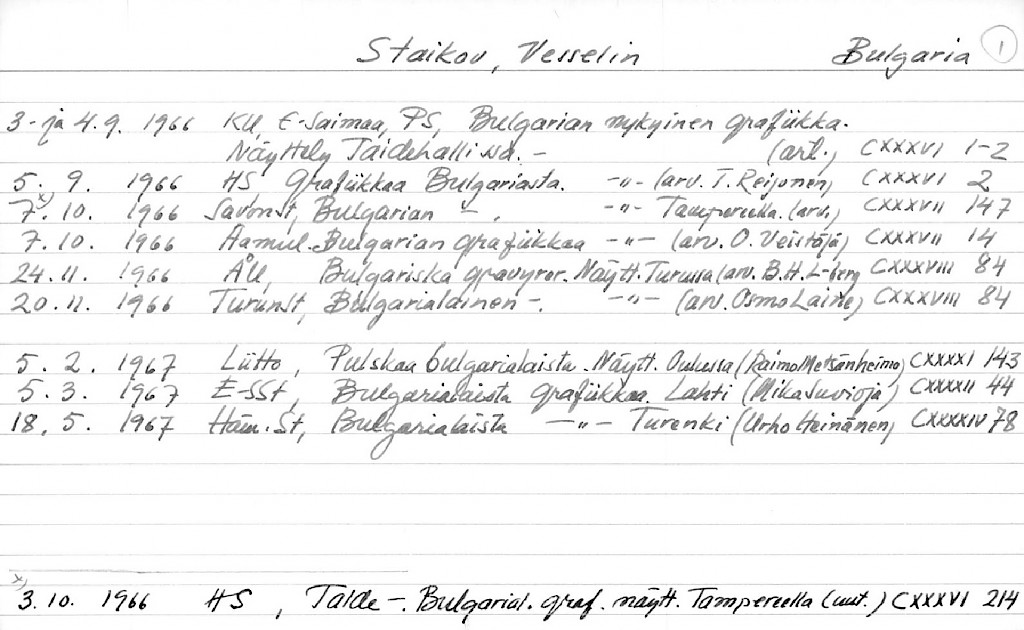 Staikov, Vesselin Bulgaria 1
3- ja 4.9. 1966 KU, E-Saimaa, PS, Bulgarian nykyinen grafiikka.
Näyttely Taidehallissa. - (art., CXXXVI 1-2
5. 9. 1966 HS, Grafiikkaa Bulgariasta. -"- (arv. T. Reijonen, CXXXVI 2
x)
7. 10. 1966 Savonst, Bulgarian - . -"- Tampereella. (arv., CXXXVII 147
7. 10. 1966 Aamul. Bulgarian grafiikkaa -"- (arv. O. Veistäjä) CXXXVII 14
24. 11. 1966 ÅU, Bulgariska gravyrer. Näytt. Turussa (arv. B.H. L-berg CXXXVIII 84
20. 11. 1966 Turunst, Bulgarialainen -. -"- (arv. Osmo Laine, CXXXVIII 84
5. 2. 1967 Liitto, Pulskaa bulgarialaista. Näytt. Oulussa (Raimo Metsänheimo, CXXXXI 143
5. 3. 1967 E-SSt, Bulgarialaista grafiikkaa. Lahti (Mika Suvioja) CXXXXII 44
18. 5. 1967 Häm. St, Bulgarialaista -"- Turenki (Urho Heinänen, CXXXXIV 78
x)
3. 10. 1966 HS, Taide -. Bulgarial. graf. näytt. Tampereella (uut.) CXXXVI 214